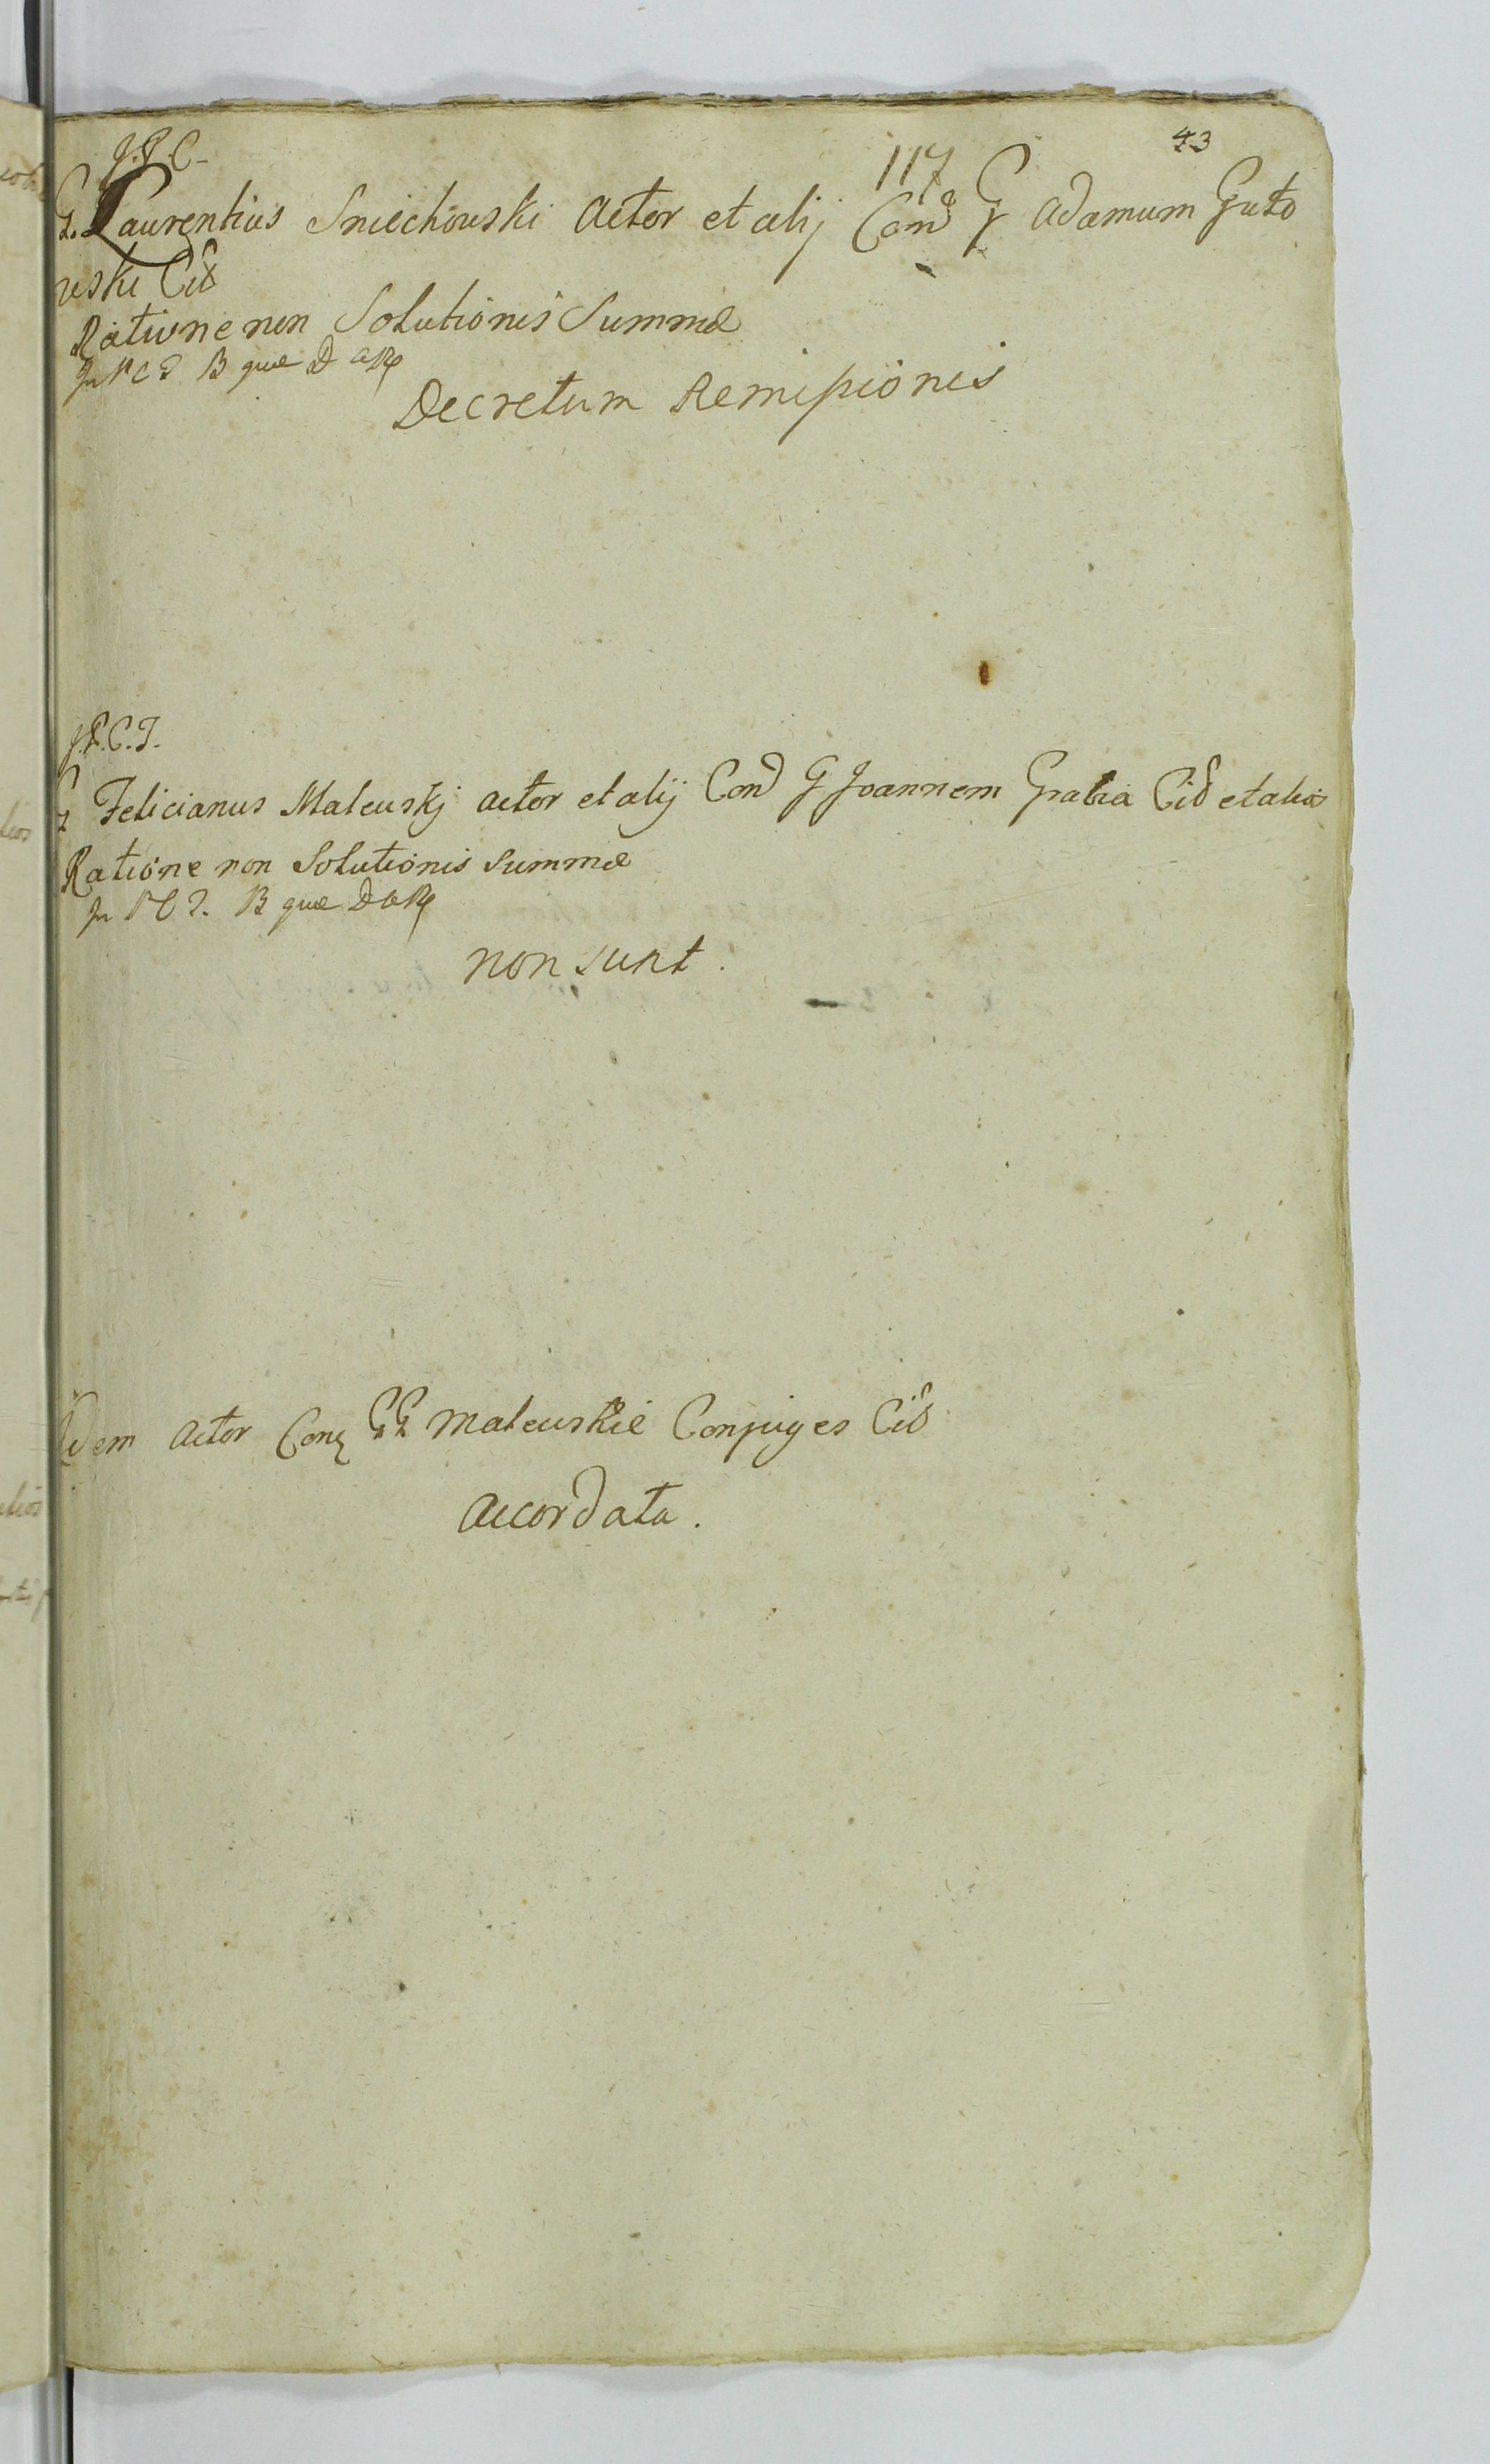 43
117
J.P.C.
G. Laurentius Sniechowski Actor et alij Con G Adamum Guto
wski Cit
Ratione non Solutionis Summæ
In P C I B quæ D
Decretum Remissionis
J.P.C.I.
G Felicianus Maleuskj actor et alij Con G Joannem Grabia Cit et alios
Ratione non Solutionis Summæ
In P C I. B quæ D
non sunt.
Idem Actor Con GG Maleuskie Conjuges Cit
Accordata.